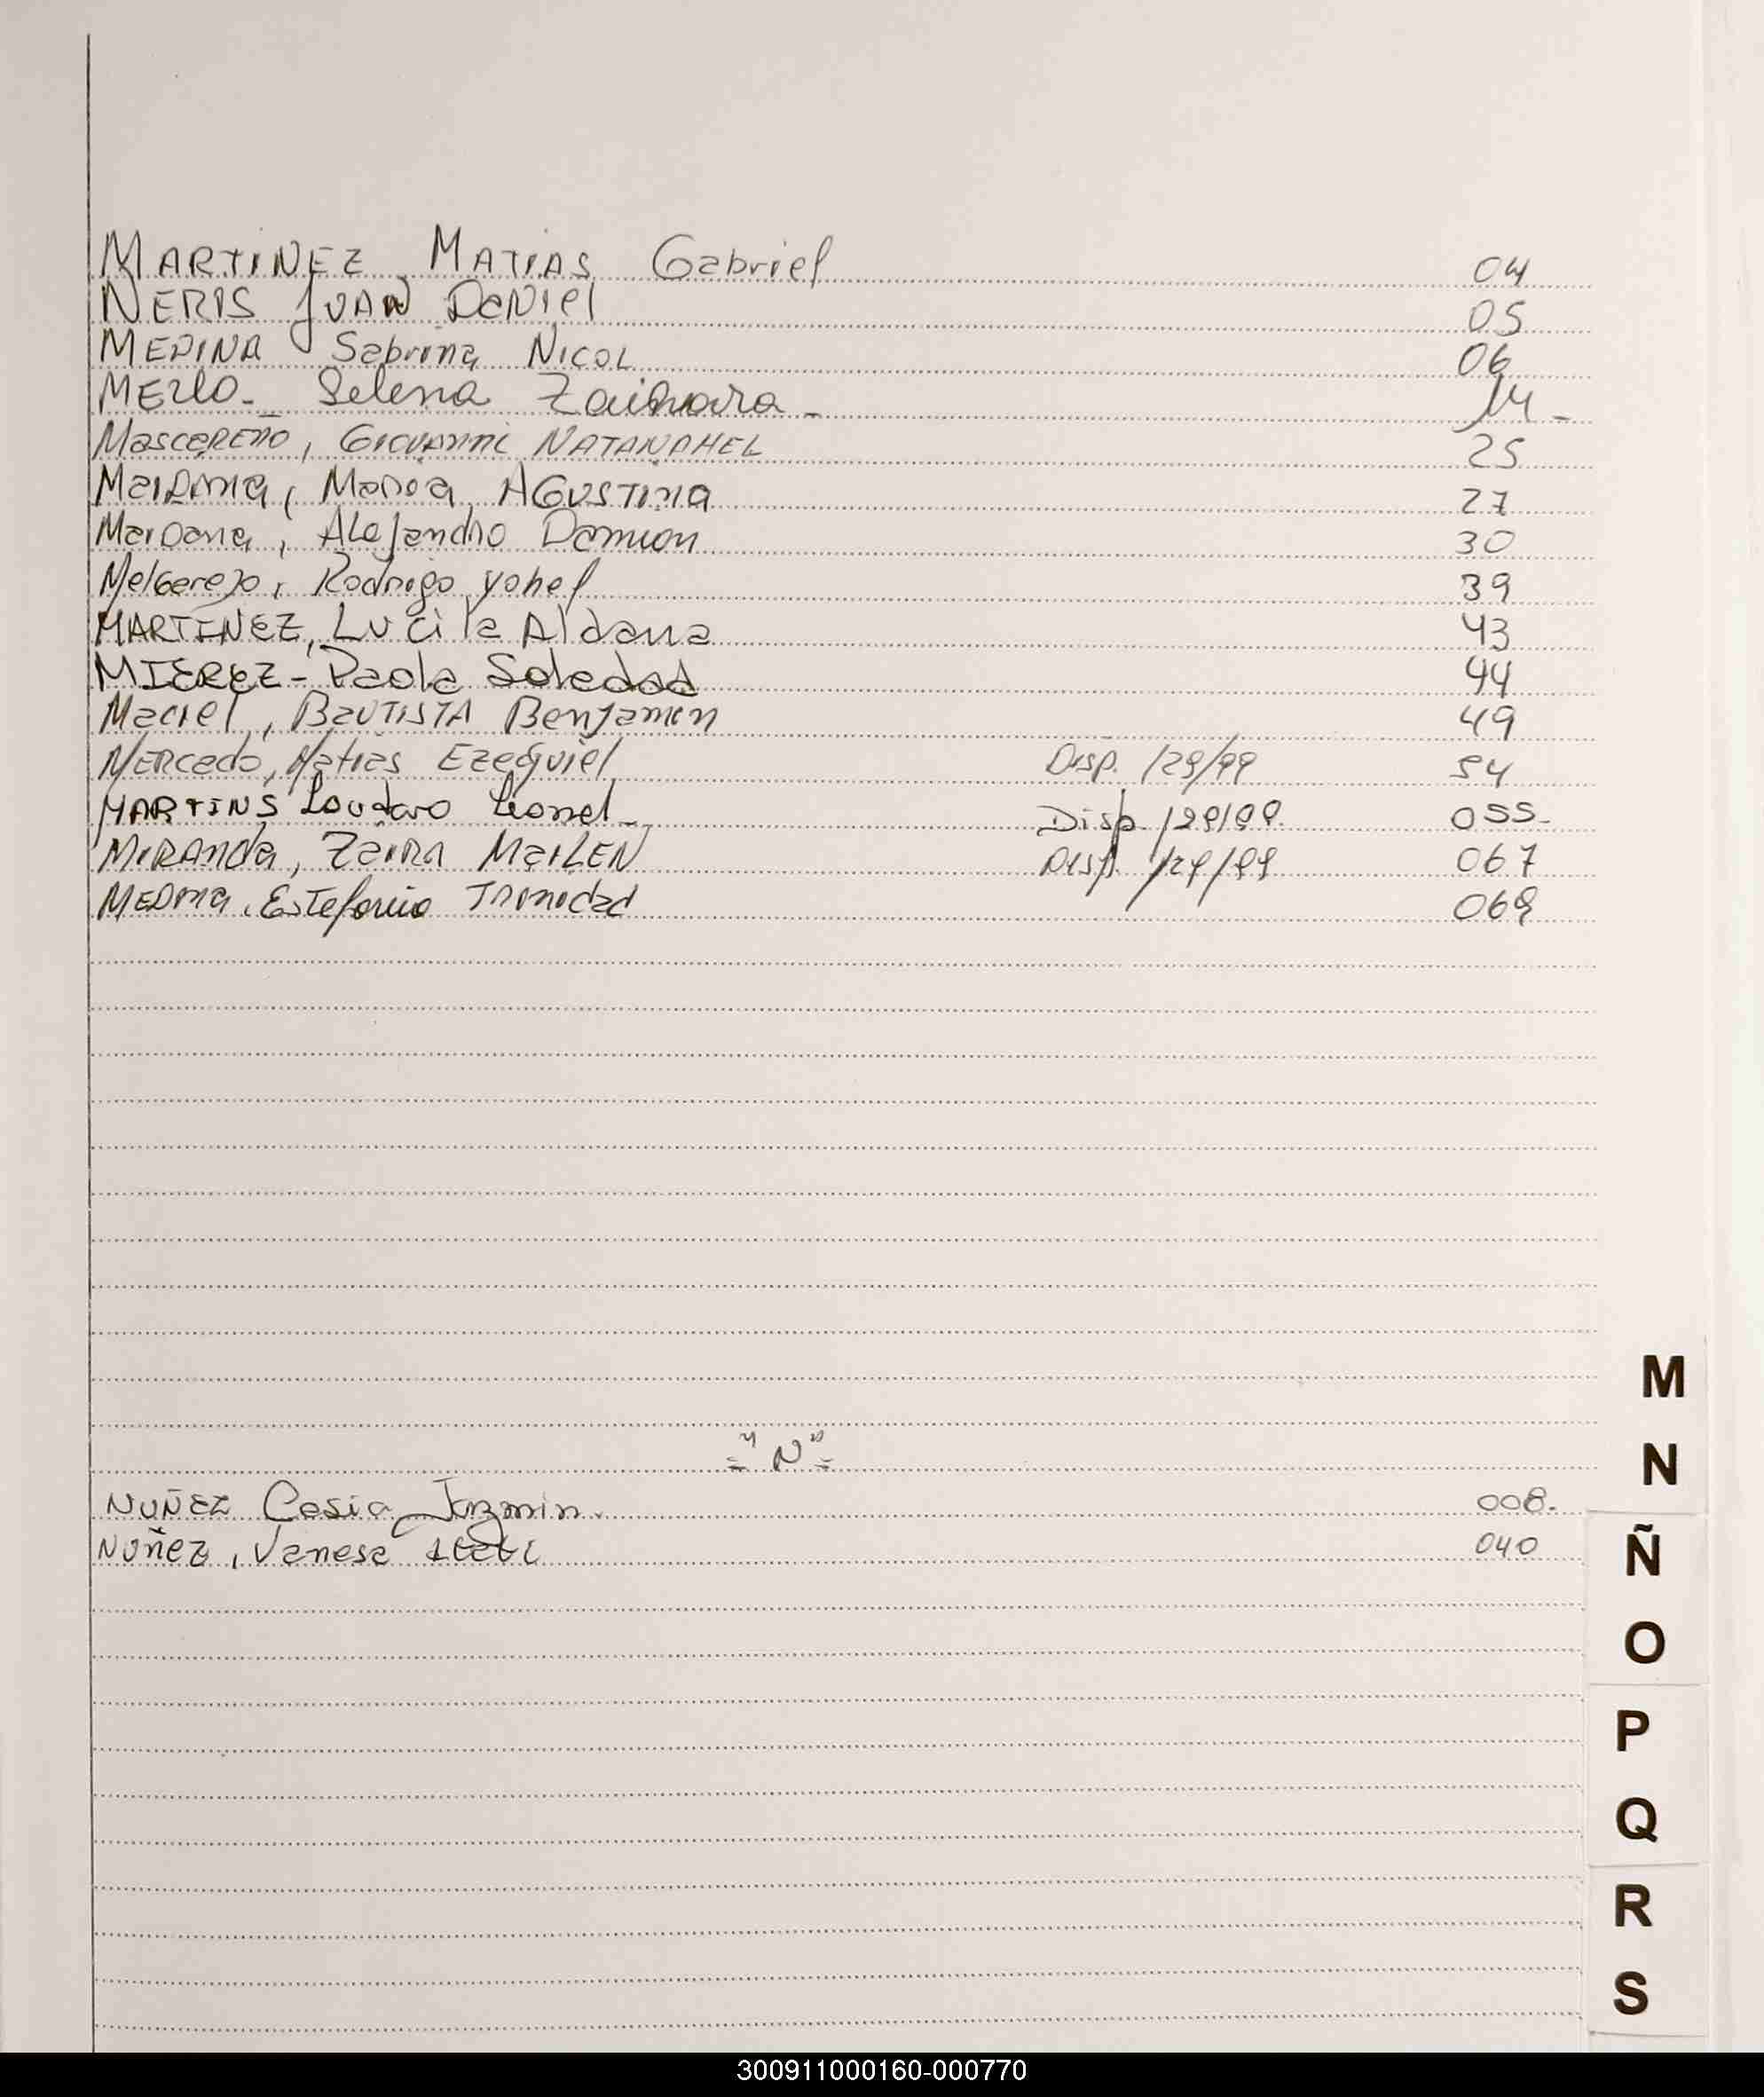 MARTINEZ MATIAS Gabriel 04
NERIS JUAN DANIEL 05
MEDINA Sabrina NICOL 06
MERLO - Selena Zaihara - 14 -
MascaREÑO, GIOVANNI NATANAHEL 25
MaIDANA, María AGUSTINA 27
Maidana, Alejandro Damian 30
Melgarejo, Rodrigo Yohel 39
MARTINEZ, Lucila Aldana 43
MIEREZ - Paola Soledad 44
Maciel, BAUTISTA Benjamin 49
MERcado, Matias Ezequiel Disp. 129/99 54
MARTINS Lautaro Lionel - Disp. 129/99 055-
MIRANDA, ZAIRA MaiLEN Disp. 129/99 067
MEDINA, Estefania Trinidad 069
= "N" =
NUÑEZ Cesia Jazmin. 008.
NUÑEZ, Vanesa 040
M
N
Ñ
O
P
Q
R
S
300911000160-000770